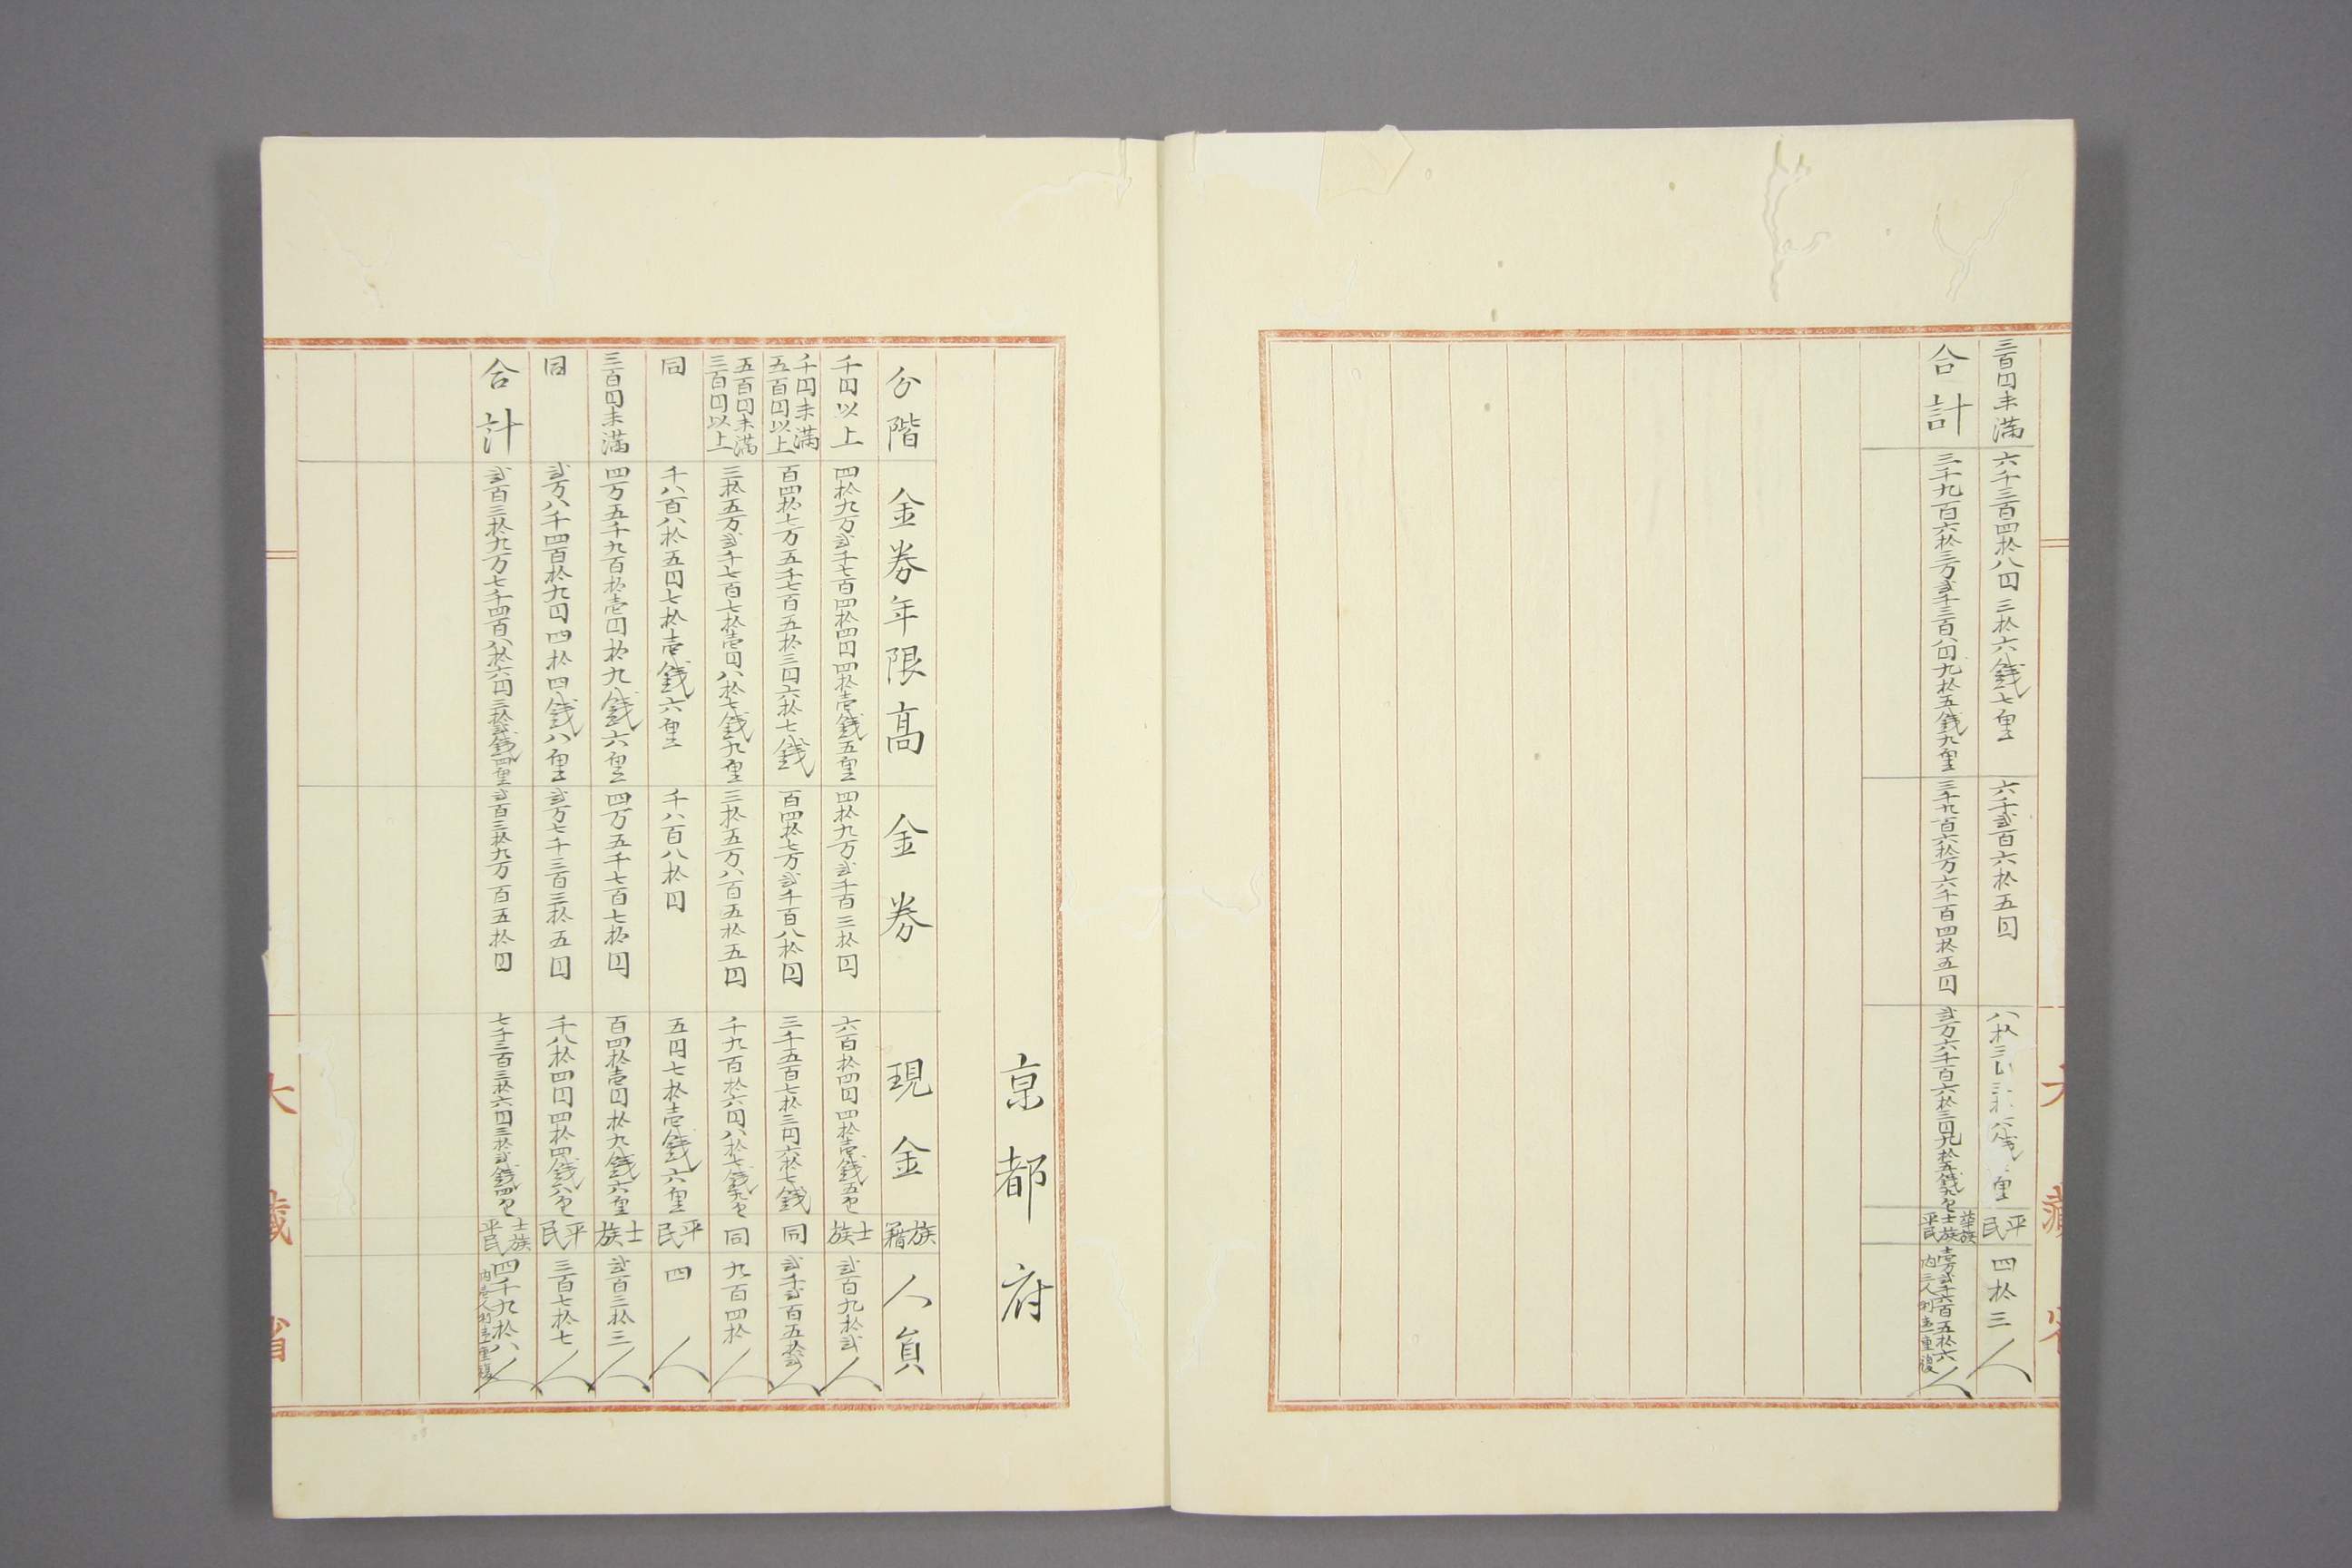 三百円未満 六千三百四拾八円三拾六銭七厘 六千弐百六拾五円 八拾三 六銭 厘 平民 四拾三人
合計 三千九百六拾三万弐千三百八円九拾五銭九厘 三千九百六拾万六千百四拾五円 弐万六千百六拾三円九拾五銭九厘 華族士族平民 壱万弐千六百五拾六人
内三人利違重複
大藏省
京都府
分階 金券年限高 金券 現金 族籍 人員
千円以上 四拾九万弐千七百四拾四円四拾壱銭五厘 四拾九万弐千百三拾円 六百拾四円四拾壱銭五厘 士族 弐百九拾弐人
千円未満五百円以上 百四拾七万五千七百五拾三円六拾七銭 百四拾七万弐千百八拾円 三千五百七拾三円六拾七銭 同 弐千弐百五拾弐人
五百円未満三百円以上 三拾五万弐千七百七拾壱円八拾七銭九厘 三拾五万八百五拾五円 千九百拾六円八拾七銭九厘 同 九百四拾人
同 千八百八拾五円七拾壱銭六厘 千八百八拾円 五円七拾壱銭六厘 平民 四人
三百円未満 四万五千九百拾壱円拾九銭六厘 四万五千七百七拾円 百四拾壱円拾九銭六厘 士族 弐百三拾三人
同 弐万八千四百拾九円四拾四銭八厘 弐万七千三百三拾五円 千八拾四円四拾四銭八厘 平民 三百七拾七人
合計 弐百三拾九万七千四百八拾六円三拾弐銭四厘 弐百三拾九万百五拾円 七千三百三拾六円三拾弐銭四厘 士族平民 四千九拾八人
内壱人利違重複
大藏省